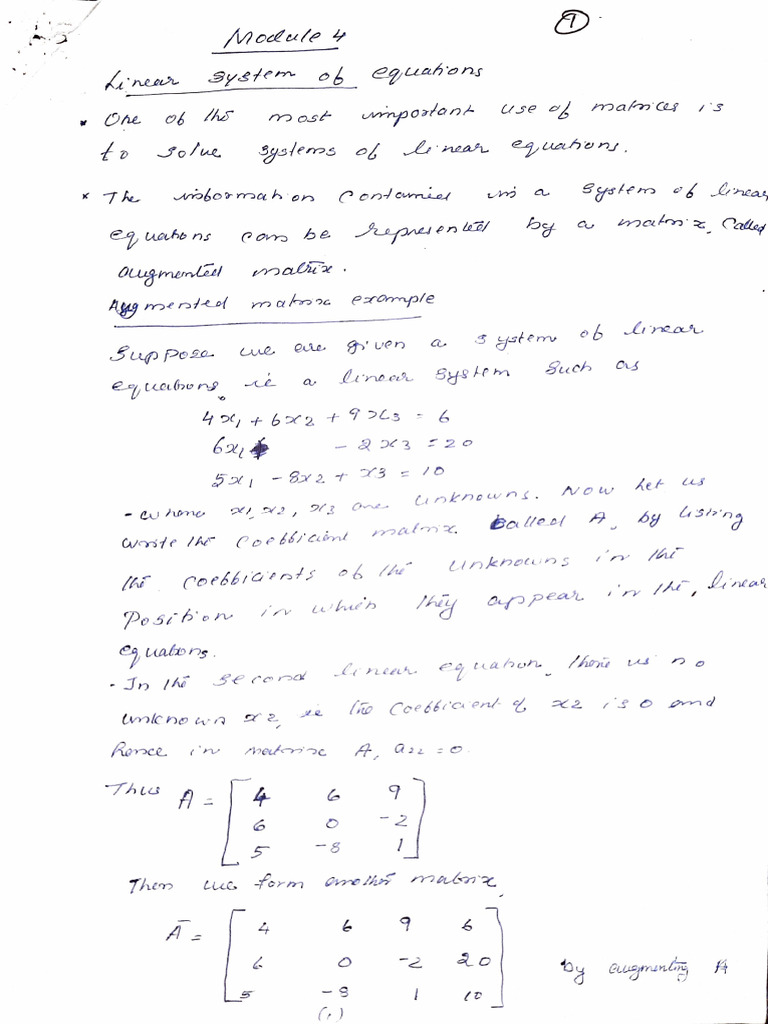 1
Module 4
Linear system of equations
* One of the most important use of matrices is
to solve systems of linear equations.
* The information contained in a system of linear
equations can be represented by a matrix, called
augmented matrix.
Augmented matrix example
Suppose we are given a system of linear
equations, ie a linear system such as
4x1 + 6x2 + 9x3 = 6
6x1 - 2x3 = 20
5x1 - 8x2 + x3 = 10
- where x1, x2, x3 are unknowns. Now let us
write the coefficient matrix called A, by listing
the coefficients of the unknowns in the
position in which they appear in the, linear
equations.
- In the second linear equation, there is no
unknown x2, ie the coefficient of x2 is 0 and
hence in matrix A, a22 = 0.
Thus A = [ 4 6 9
6 0 -2
5 -8 1 ]
Then we form another matrix,
Ā = [ 4 6 9 6
6 0 -2 20
5 -8 1 10 ] by augmenting A
(1)